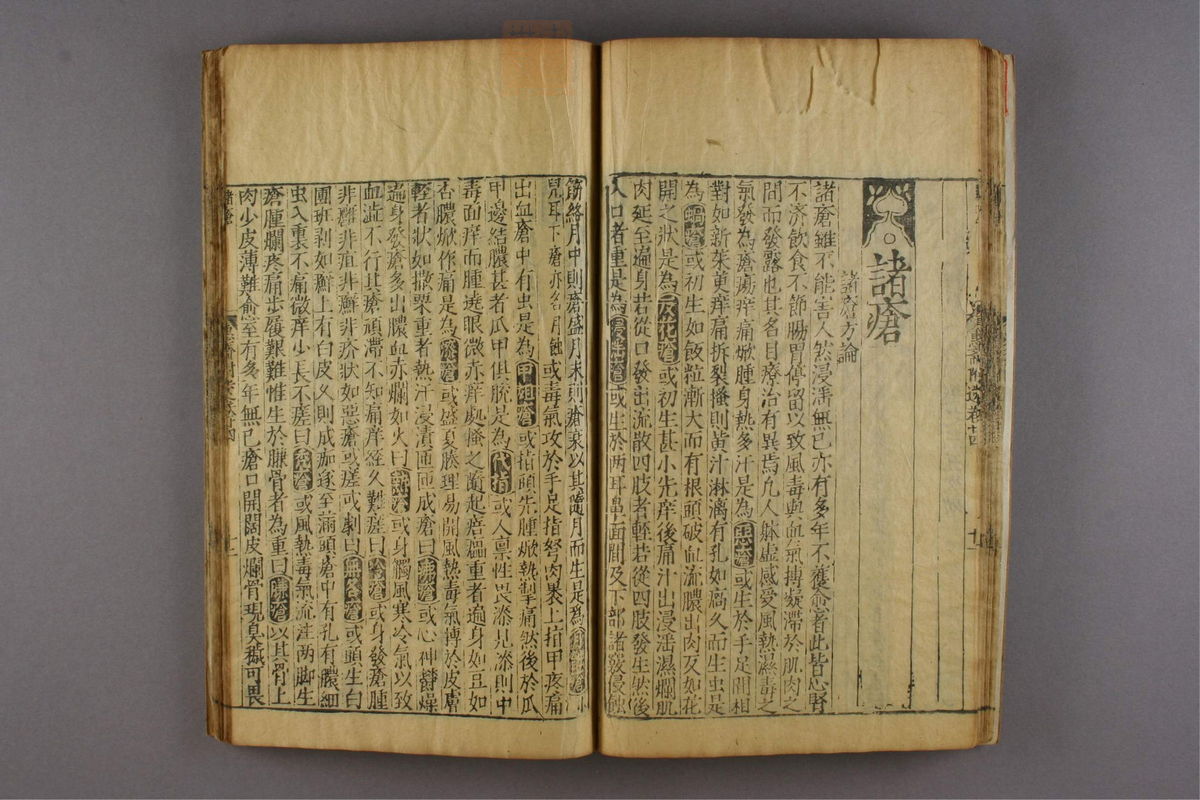 諸瘡
諸瘡方論
諸瘡雖不能害人然浸淫無已亦有多年不獲愈者此皆心腎
不濟飲食不節腸胃停留以致風毒與血氣摶凝滯於肌肉之
間而發露也其名目療治有異焉凢人躰虛感受風熱濕毒之
氣發為瘡瘍痒痛焮腫身熱多汗是為惡瘡或生於手足間相
對如新茱萸痒痛拆裂搔則黃汁淋漓有孔如癘久而生虫是
為㾦瘡或初生如飯粒漸大而有根頭破血流膿出肉反如花
開之狀是為反花瘡或初生甚小先痒後痛汁出浸淫濕爛肌
肉延至遍身若從口發出流散四肢者輕若從四肢發生然後
入口者重是為浸淫瘡或生於兩耳鼻面間及下部諸竅侵蝕
筋絡月中則瘡盛月末則瘡衰以其隨月而生是為小
兒耳下瘡亦名月蝕或毒氣攻於手足指努肉裹上指甲疼痛
出血瘡中有虫是為甲疽瘡或指頭先腫焮熱掣痛然後於爪
甲邊結膿甚者爪甲俱脫是為代指或人稟性畏漆見漆則中
毒面痒而腫遶眼微赤痒處搔之隨起痦㿈重者遍身如豆如
杏膿焮作痛是為漆瘡或盛夏腠理易開風熱毒氣摶於皮膚
輕者狀如撒粟重者熱汗浸漬匝匝成瘡曰疿瘡或心神鬱燥
遍身發瘡多出膿血赤爛如火曰或身觸風寒冷氣以致
血澁不行其瘡頑滯不知痛痒經久難瘥曰或身發瘡腫
非癰非疽非癬非疥狀如惡瘡或瘥或劇曰無名瘡或頭生白
團班剥如癬上有白皮久則成痂遂至滿頭瘡中有孔有膿細
虫入裏不痛微痒少長不瘥曰禿瘡或風熱毒氣流注兩脚生
瘡腫爛疼痛步履艱難惟生於臁骨者為重曰臁瘡以其骨上
肉少皮薄難愈至有多年無已瘡口開闊皮爛骨現臭穢可畏